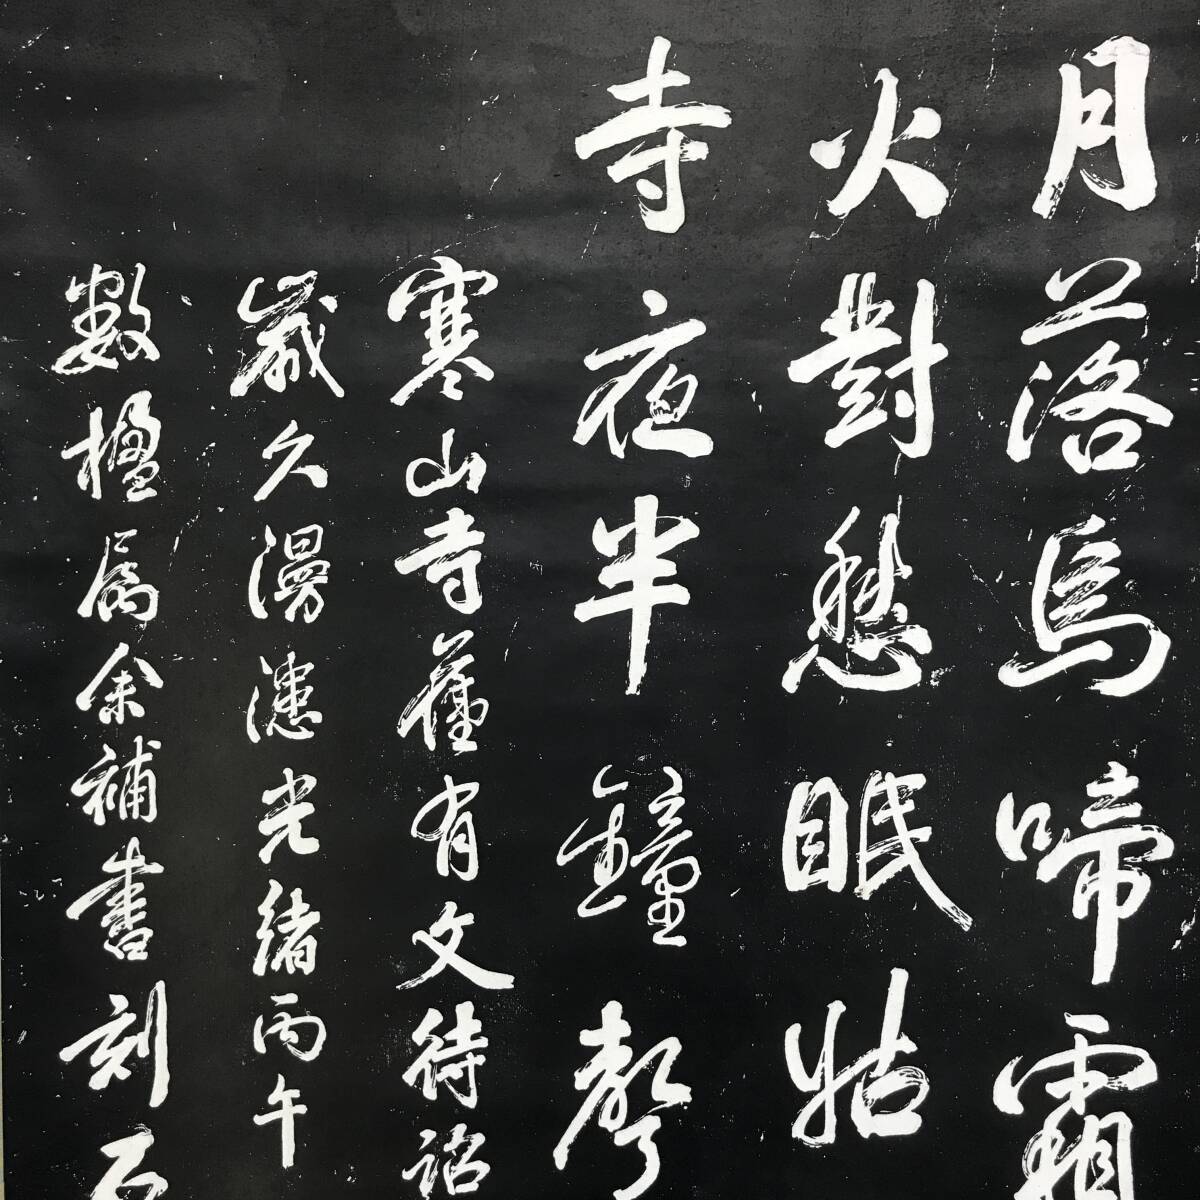 月落烏啼霜
火對愁眠姑
寺夜半鐘聲
寒山寺舊有文待詔
歲久漫漶光緒丙午
數楹屬余補書刻石